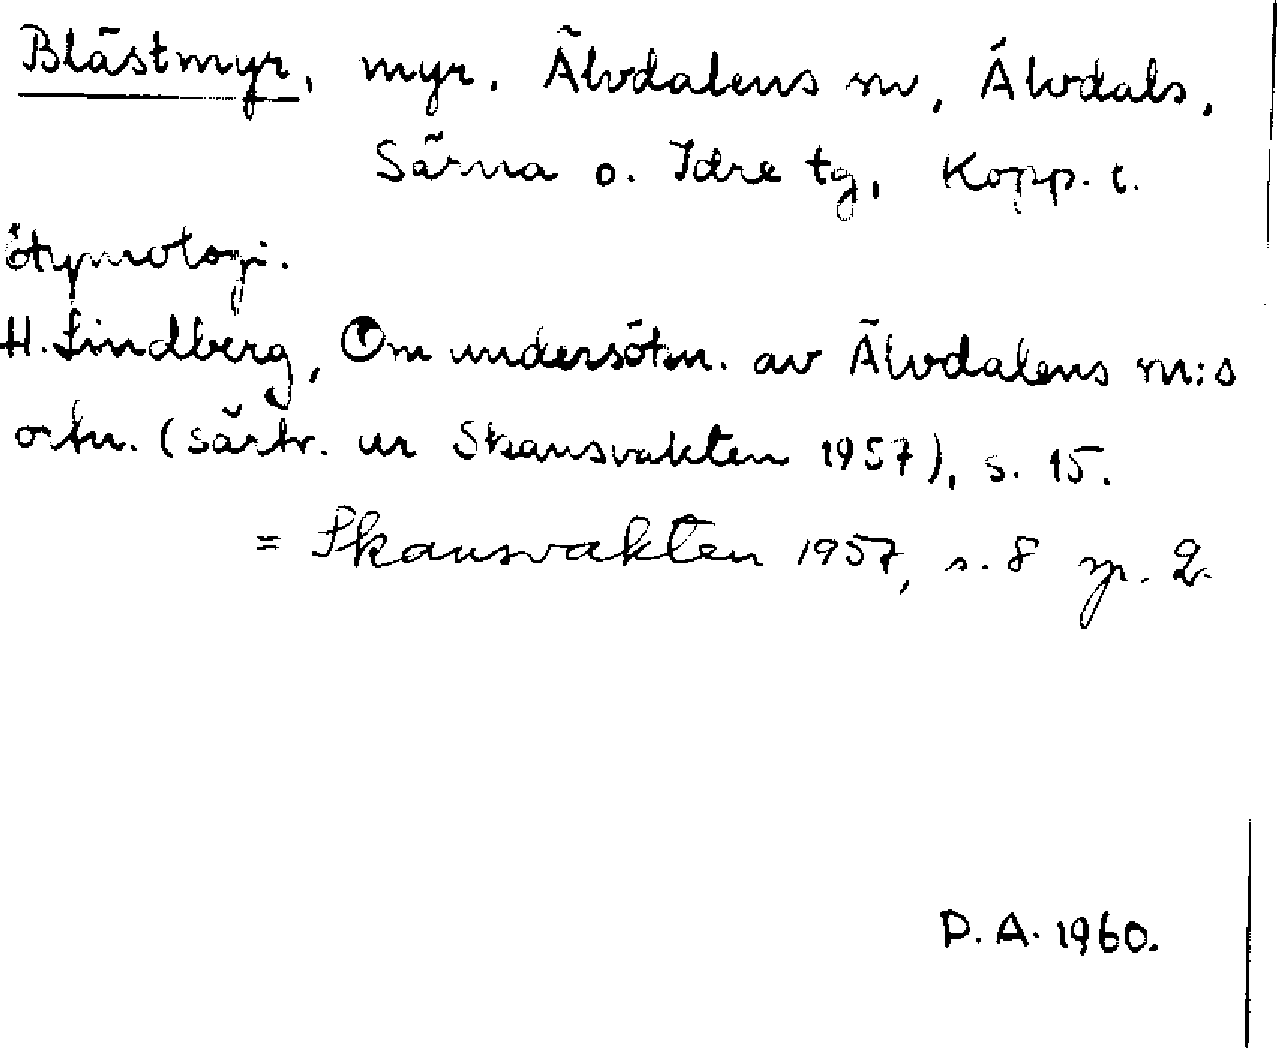 Blästmyr, myr. Älvdalens sn, Älvdals,
Särna o. Idre tg, Kopp. l.
Etymologi.
H. Lindberg, Om undersökn. av Älvdalens sn:s
ortn. (särtr. ur Skansvakten 1957), s. 15.
= Skansvakten 1957, s. 8 sp. 2.
D. A. 1960.